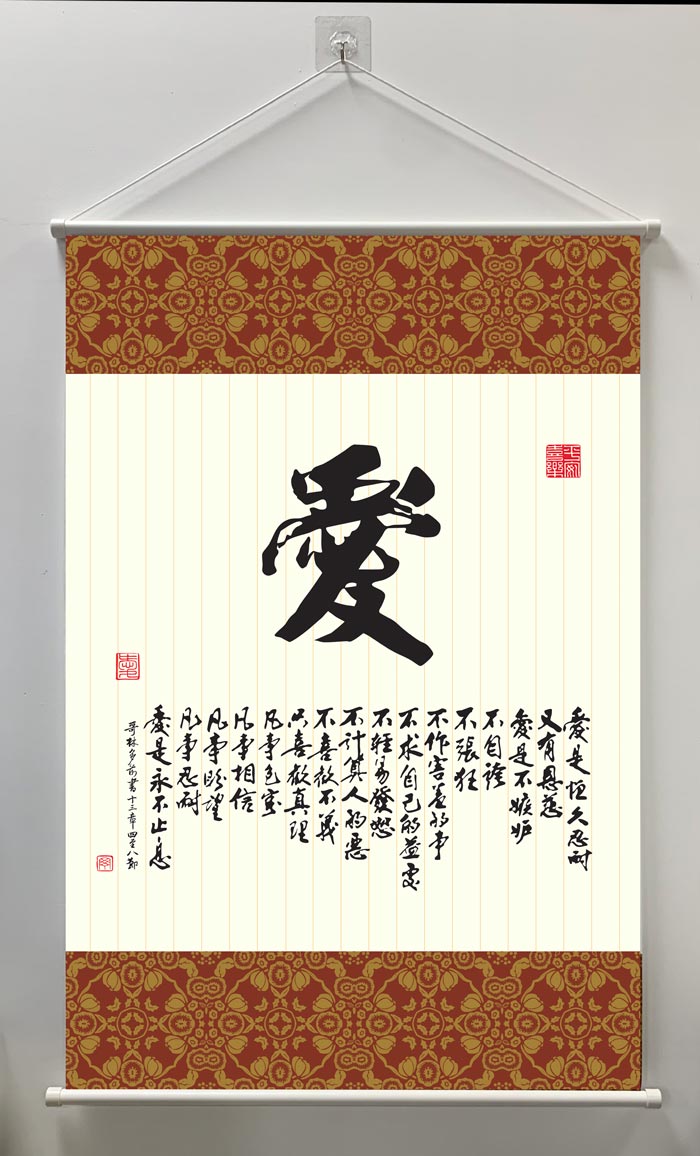 愛
平安喜樂
愛是恒久忍耐
又有恩慈
愛是不嫉妒
不自誇
不張狂
不作害羞的事
不求自己的益處
不輕易發怒
不計算人的惡
不喜歡不義
只喜歡真理
凡事包容
凡事相信
凡事盼望
凡事忍耐
愛是永不止息
哥林多前書十三章四至八節